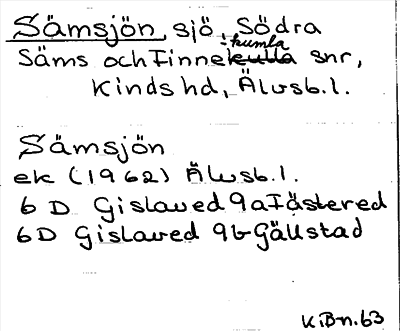 Sämsjön, sjö, Södra
Säms och Finnekumla snr,
Kinds hd, Älvsb. l.
Sämsjön
ek (1962) Älvsb. l.
6 D Gislaved 9a Fästered
6D Gislaved 9b Gällstad
KiBn. 63